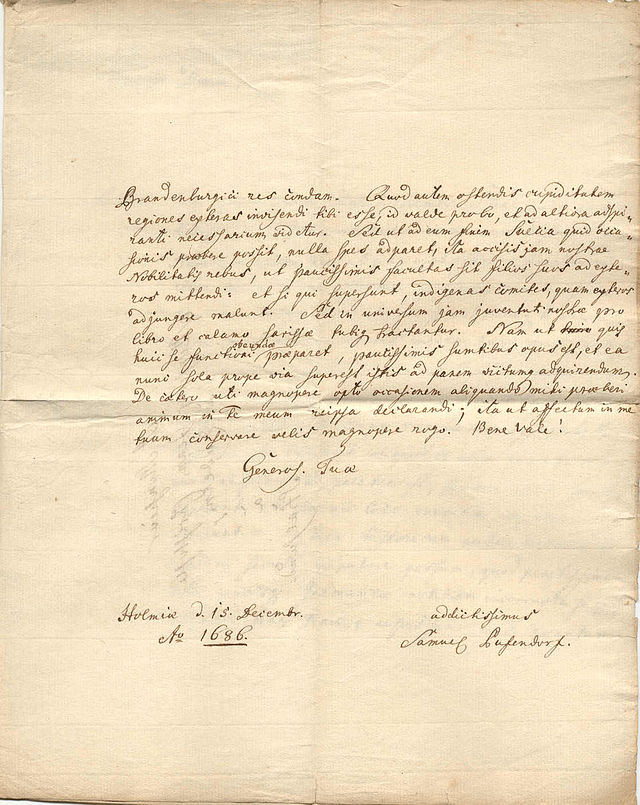 Brandenburgici res condam. Quod autem ostendis cupiditatem
regiones exteras invisendi tibi esse, id valde probo, et ad altiora adspi-
ranti necessarium videtur. Sed ut ad eum finem Suecia quid occa-
sionis præbere possit, nulla spes adparet, ita accisis jam nostræ
Nobilitatis rebus, ut paucissimis facultas sit filios suos ad exte-
ros mittendi: et si qui supersunt, indigenas comites, quam exteros
adjungere malunt. Sed in universum jam juventuti nostræ pro
libro et calamo sarissæ tubiq tractantur. Nam ut quis
huic se functioni obeundæ præparet, paucissimis sumtibus opus est, et ea
nunc sola prope via superest istis ad panem victumq adquirendum.
De cætero uti magnopere opto occasionem aliquando mihi præberi
animum in Te meum reipsa declarandi; ita ut adfectum in me
tuum conservare velis magnopere rogo. Bene Vale!
Generos. Tuæ
Holmiæ d. 15. Decembr.
Ao 1686.
addictissimus
Samuel Pufendorf.